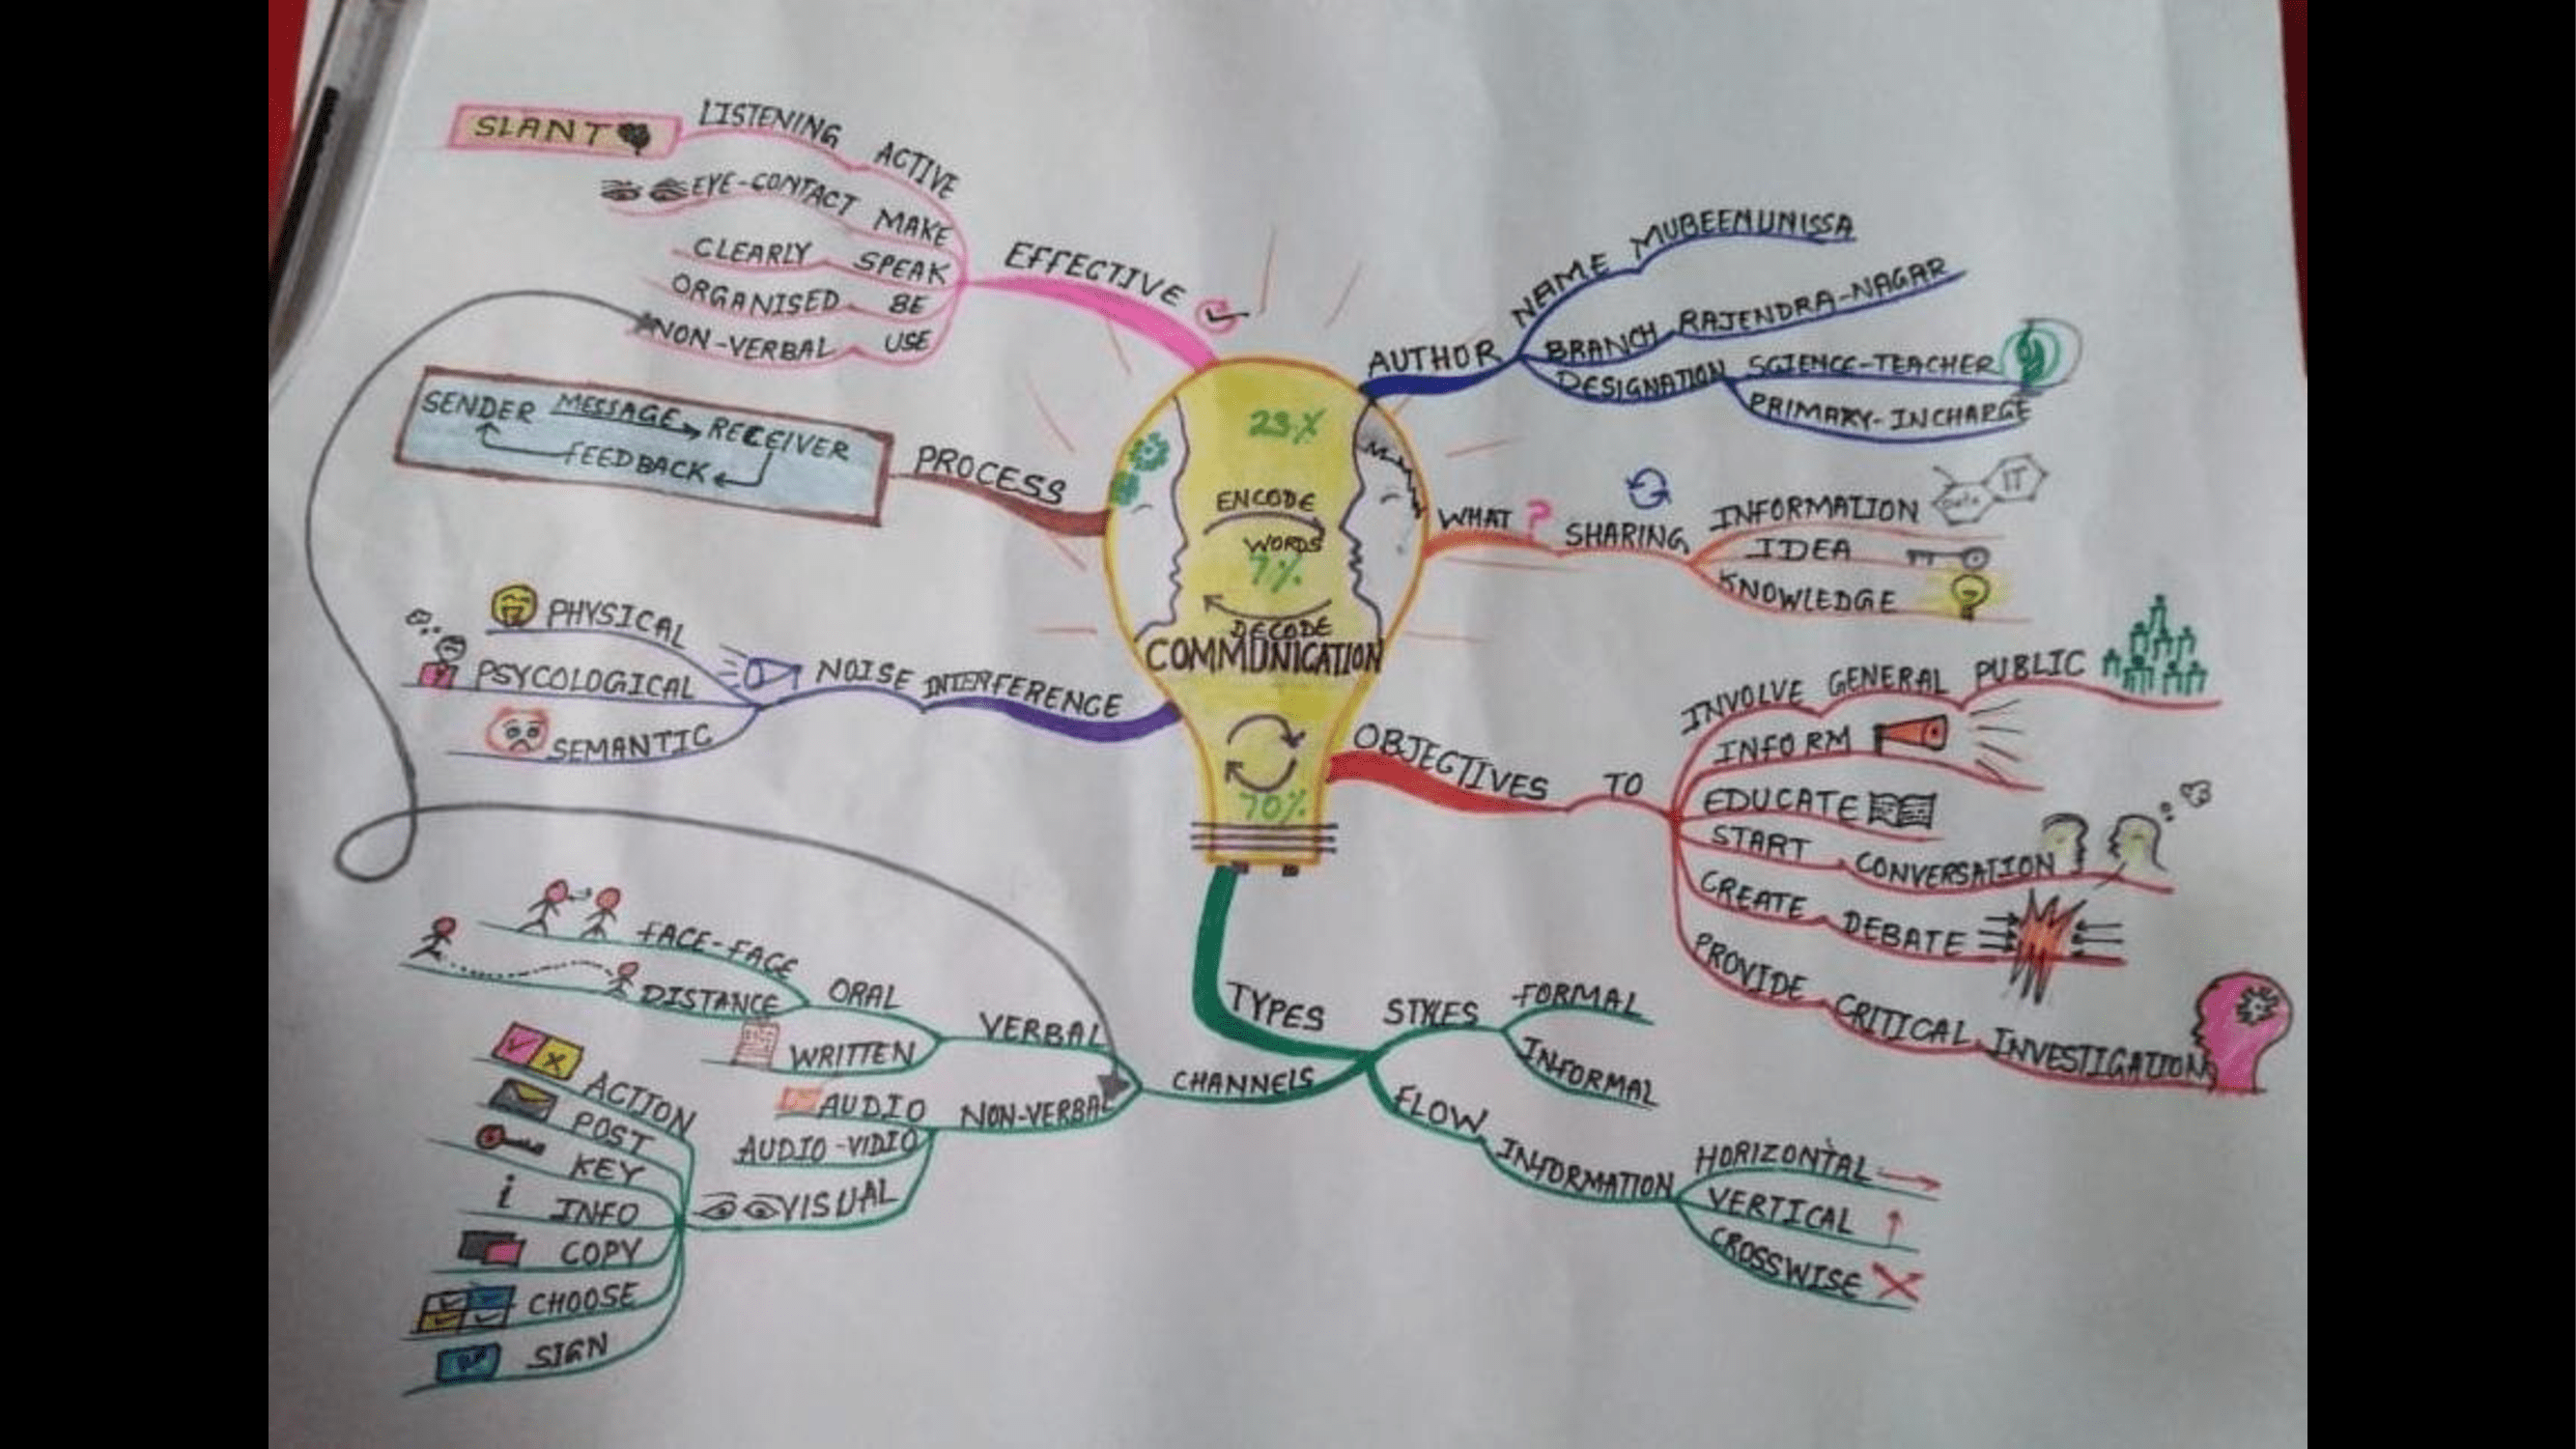 SLANT
LISTENING ACTIVE
EYE-CONTACT MAKE
CLEARLY SPEAK
ORGANISED BE
NON-VERBAL USE
EFFECTIVE
SENDER MESSAGE RECEIVER
FEEDBACK
PROCESS
PHYSICAL
PSYCOLOGICAL
SEMANTIC
NOISE INTERFERENCE
23%
ENCODE
WORDS
7%
DECODE
COMMUNICATION
70%
AUTHOR
NAME MUBEENUNISSA
BRANCH RAJENDRA-NAGAR
DESIGNATION SCIENCE-TEACHER
PRIMARY-INCHARGE
WHAT? SHARING
INFORMATION
IT
IDEA
KNOWLEDGE
OBJECTIVES TO
INVOLVE GENERAL PUBLIC
INFORM
EDUCATE
START CONVERSATION
CREATE DEBATE
PROVIDE CRITICAL INVESTIGATION
TYPES
STYLES
FORMAL
INFORMAL
FLOW INFORMATION
HORIZONTAL
VERTICAL
CROSSWISE
CHANNELS
VERBAL
ORAL
FACE-FACE
DISTANCE
WRITTEN
NON-VERBAL
AUDIO
AUDIO-VIDIO
VISUAL
ACTION
POST
KEY
i INFO
COPY
CHOOSE
SIGN